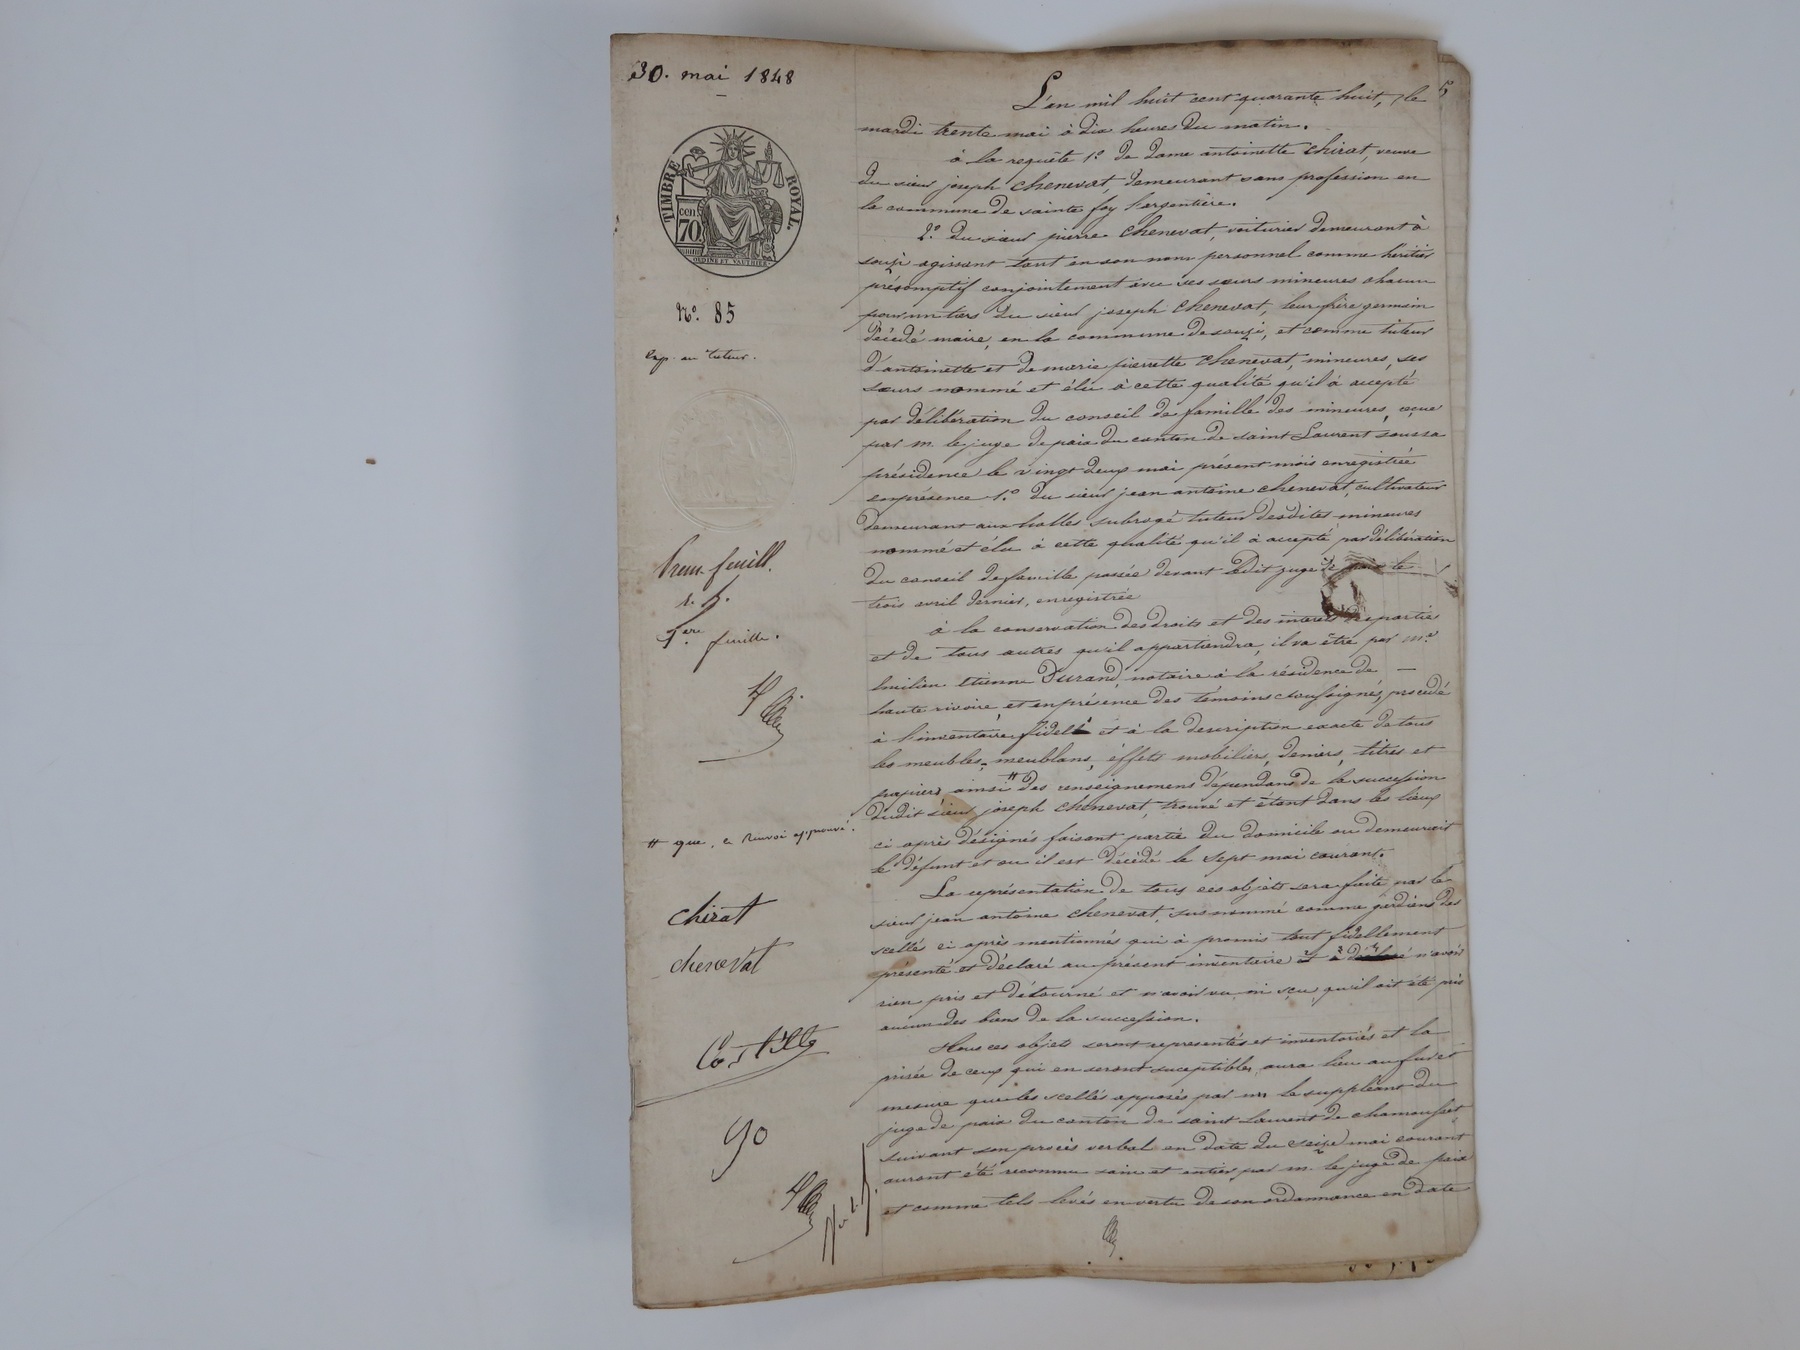 30. mai 1848
TIMBRE ROYAL.
cen.
70
N.º 85
Exp. au tuteur.
feuill.
1ère feuille.
# que. ce Renvoi approuvé.
chirat
chenevat
90
L'an mil huit cent quarante huit, le
mardi trente mai à dix heures du matin.
à la requête 1.º de dame antoinette chirat, veuve
du sieur joseph chenevat, demeurant sans profession en
la commune de sainte foy l'argentière.
2.º du sieur pierre chenevat, voiturier demeurant à
souzi agissant tant en son nom personnel comme héritier
présomptif conjointement avec ses sœurs mineures chacun
pour un tiers du sieur joseph chenevat, leur frère germain
décédé maire, en la commune de souzi, et comme tuteur
d'antoinette et de marie pierrette chenevat, mineures, ses
sœurs nommé et élu à cette qualité qu'il à accepté
par délibération du conseil de famille des mineures, reçue
par m. le juge de paix du canton de saint Laurent sous sa
présidence le vingt deux mai présent mois enregistrée
en présence 1.º du sieur jean antoine chenevat, cultivateur
demeurant aux halles subrogé tuteur desdites mineures
nommé et élu à cette qualité qu'il à accepté par délibération
du conseil de famille passée devant ledit juge de paix le
trois avril dernier, enregistrée
à la conservation des droits et des intérets des parties
et de tous autres qu'il appartiendra, il va être par Me.
Emilien Etienne Durand, notaire à la résidence de
haute rivoire, et en présence des témoins soussignés, procédé
à l'inventaire fidele et à la description exacte de tous
les meubles, meublans, éffets mobilier, deniers, titres et
papiers ainsi # des renseignemens dépendans de la succession
dudit sieur joseph chenevat, trouvé et étant dans les lieux
ci après désignés faisant partie du domicile ou demeurait
le défunt et ou il est décédé le sept mai courant.
La représentation de tous ces objets sera faite par le
sieur jean antoine chenevat, susnommé comme gardiens des
scellés ci après mentionnés qui à promis tout fidellement
présenté et déclaré au présent inventaire n'avoir
rien pris et détourné et n'avoir vu, ni sçu, qu'il ait été pris
aucun des biens de la succession.
Tous ces objets seront représentés et inventoriés et la
prisée de ceux qui en seront suceptibles, aura lieu au fur et
mesure que les scellés apposés par m. le suppléant du
juge de paix du canton de saint Laurent de chamousset
suivant son procès verbal en date du seize mai courant
auront été reconnu sain et entier par m. le juge de paix
et comme tels levés en vertu de son ordonnance en date